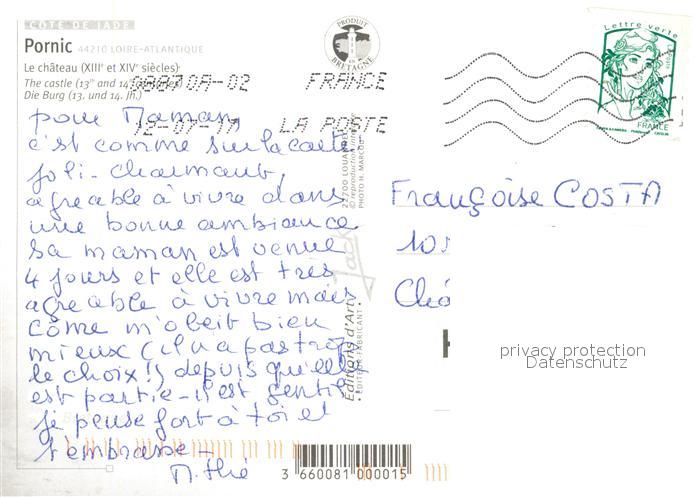 CÔTE DE JADE
Pornic 44210 LOIRE-ATLANTIQUE
Le château (XIIIe et XIVe siècles)
The castle (13th and 14th centuries)
Die Burg (13. und 14. Jh.)
PRODUIT EN BRETAGNE
08870A-02 FRANCE
12-07-17 LA POSTE
Lettre verte
FRANCE
pour Maman
c'est comme sur la carte,
joli - charmant,
agréable à vivre dans
une bonne ambiance
sa maman est venue
4 jours et elle est très
agréable à vivre mais
Côme m'obeit bien
mieux (il n'a pas trop
le choix!) depuis qu'elle
est partie - il est gentil
je pense fort à toi et
t'embrasse -
M. Thé
22700 LOUANNEC
© reproduction interdite
PHOTO H. MARCOU
Jack
Editions d'Art
ÉDITEUR-FABRICANT
Françoise COSTA
10
Châ
privacy protection
Datenschutz
3 660081 000015